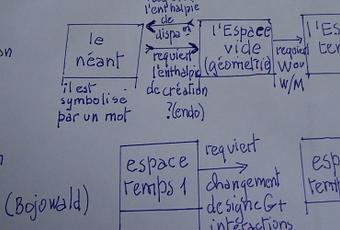 l'enthalpie
de
dispa
le
néant
l'Espace
vide
(géometrie)
l'Es
requiert
l'enthalpie
de création
?(endo)
requiert
W ou
W/M
il est
symbolisé
par un mot
espace
temps 1
requiert
changement
de signe G+
intéractions
esp
(Bojowald)